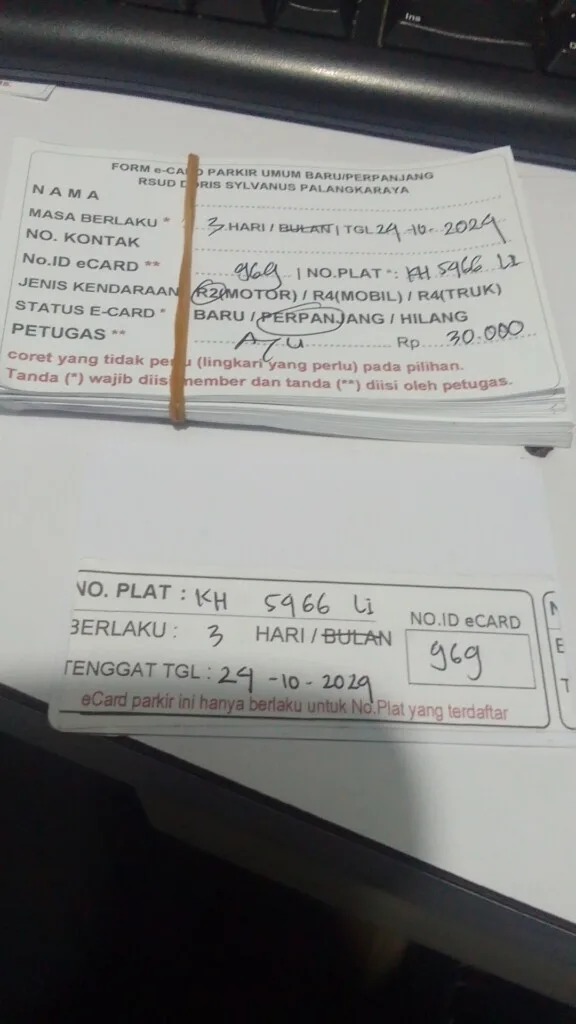 Ins
FORM e-CARD PARKIR UMUM BARU/PERPANJANG
RSUD DORIS SYLVANUS PALANGKARAYA
NAMA
MASA BERLAKU * 3 HARI / BULAN | TGL 24-10-2024
NO. KONTAK
No.ID eCARD ** 969 | NO.PLAT * : KH 5966 LI
JENIS KENDARAAN R2(MOTOR) / R4(MOBIL) / R4(TRUK)
STATUS E-CARD * BARU / PERPANJANG / HILANG
PETUGAS ** AYU Rp 30.000
coret yang tidak perlu (lingkari yang perlu) pada pilihan.
Tanda (*) wajib diisi member dan tanda (**) diisi oleh petugas.
NO. PLAT : KH 5966 Li
BERLAKU : 3 HARI / BULAN
NO.ID eCARD
969
TENGGAT TGL : 24-10-2024
eCard parkir ini hanya berlaku untuk No.Plat yang terdaftar
N
E
T